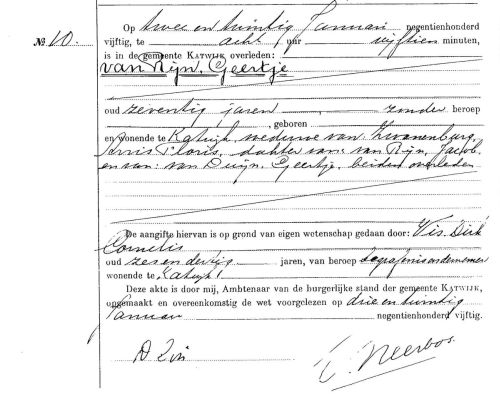 Op twee en twintig Januari negentienhonderd
No. 10. vijftig, te acht uur vijftien minuten,
is in de gemeente KATWIJK overleden:
van Rijn, Geertje
oud zeventig jaren, zonder beroep
, geboren
en wonende te Katwijk, weduwe van: Zwanenburg,
Floris, dochter van: van Rijn, Jacob
en van: van Duijn, Geertje, beiden overleden
De aangifte hiervan is op grond van eigen wetenschap gedaan door: Vis, Dirk
Cornelis
oud zesendertig jaren, van beroep begrafenisondernemer
wonende te Katwijk
Deze akte is door mij, Ambtenaar van de burgerlijke stand der gemeente KATWIJK,
opgemaakt en overeenkomstig de wet voorgelezen op drie en twintig
Januari negentienhonderd vijftig.
D Vis
Neerbos